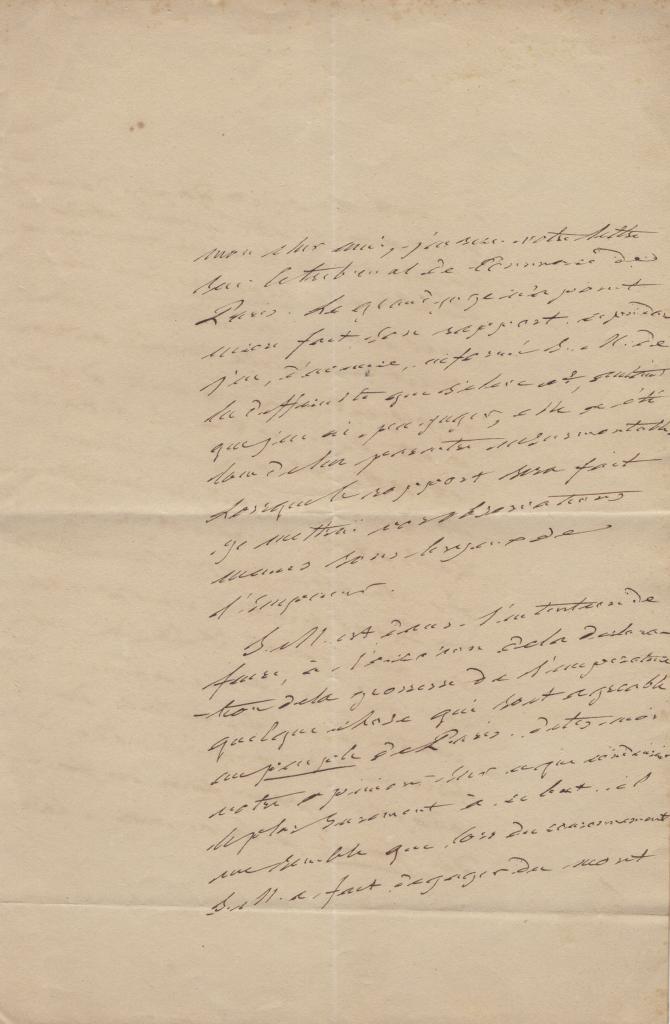 mon cher ami, j'ai reçu votre lettre
sur le tribunal de Commerce de
Paris. Le grand juge n'a point
encore fait son rapport. cependant
j'ai, d'avance, informé S. M. de
la difficulté qui s'élève et, autant
que j'en ai pu juger, elle a été
loin de lui paraître insurmontable
Lorsque le rapport sera fait
je mettrai vos observations
mêmes sous les yeux de
l'Empereur.
S. M. est dans l'intention de
faire, à l'occasion de la déclara-
tion de la grossesse de l'impératrice
quelque chose qui soit agréable
au peuple de Paris. dites-moi
votre opinion sur ce qui conduirait
le plus surement à ce but. il
me semble que lors du couronnement
S. M. a fait dégager du mont